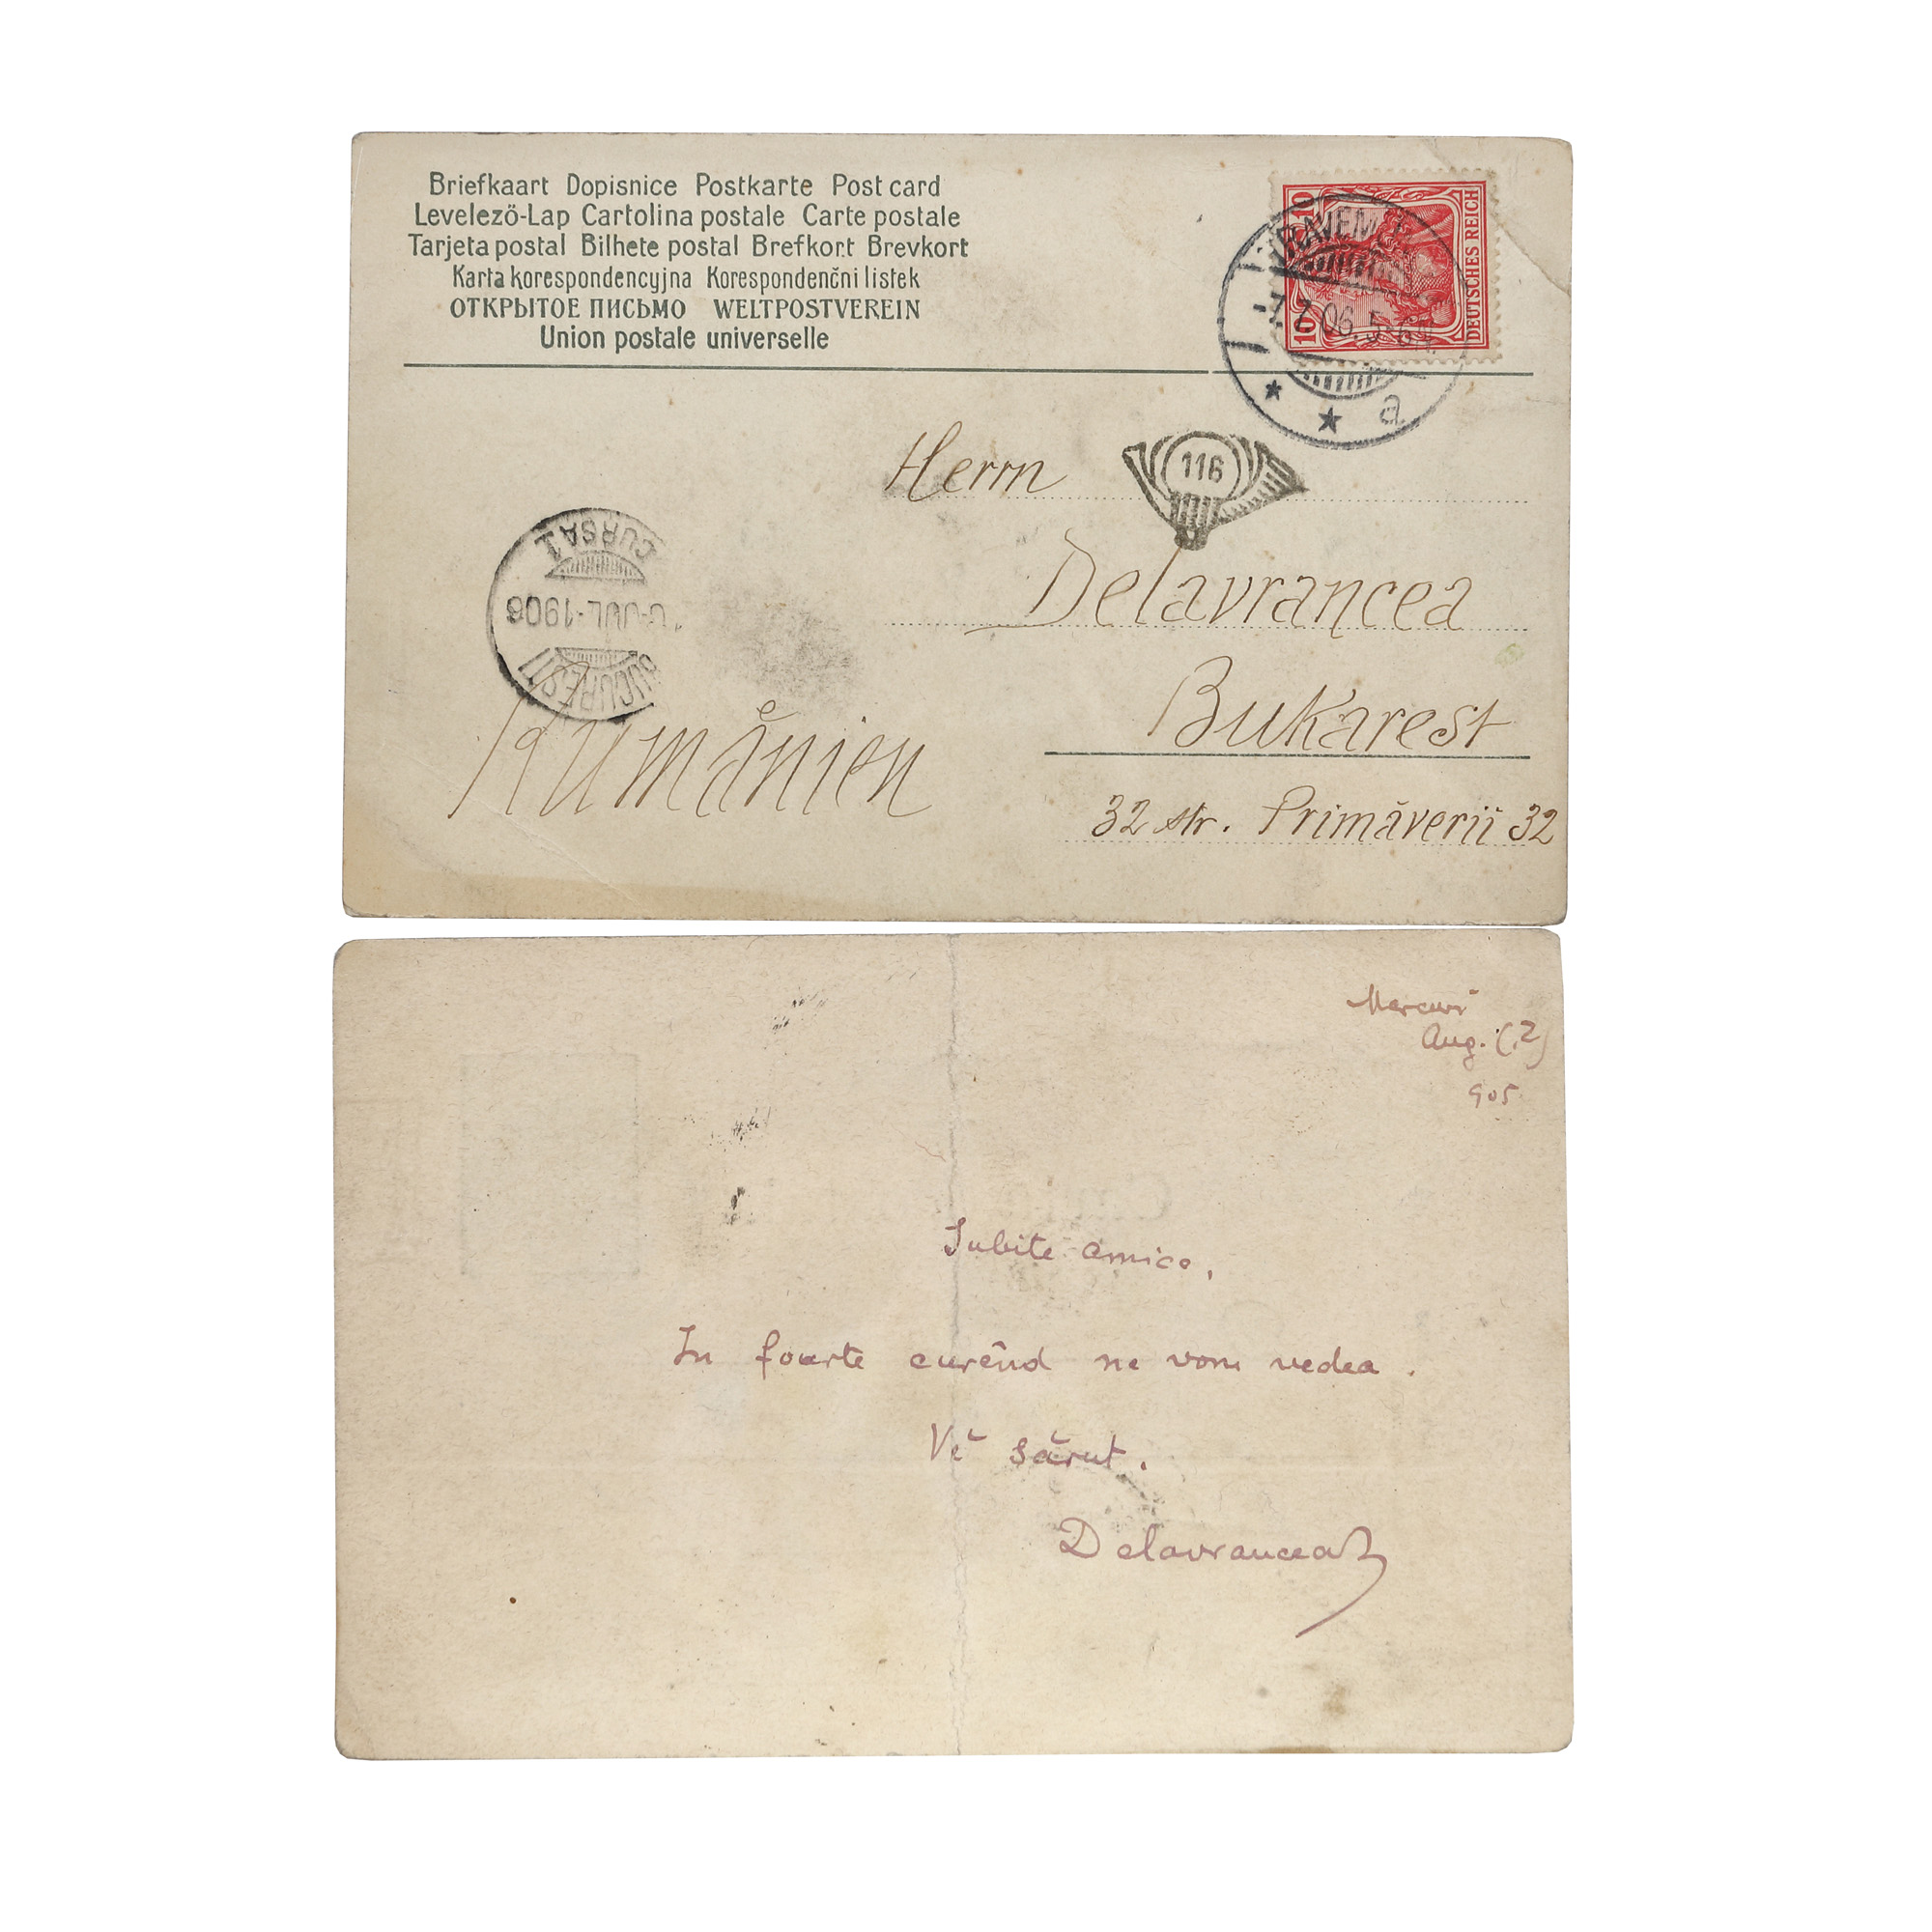 Briefkaart Dopisnice Postkarte Post card
Levelező-Lap Cartolina postale Carte postale
Tarjeta postal Bilhete postal Brefkort Brevkort
Karta korespondencyjna Korespondenčni listek
ОТКРЫТОЕ ПИСЬМО WELTPOSTVEREIN
Union postale universelle
10 10
DEUTSCHES REICH
7.06.5-6N.
a
116
Herrn
Delavrancea
CURSA I
JUL-1906
BUCURESTI
Bukarest
Rumänien
32 str. Primăverii 32
Mercuri
Aug. (.2)
905
Iubite amice,
In foarte curênd ne vom vedea.
Vĕ sărut.
Delavrancea